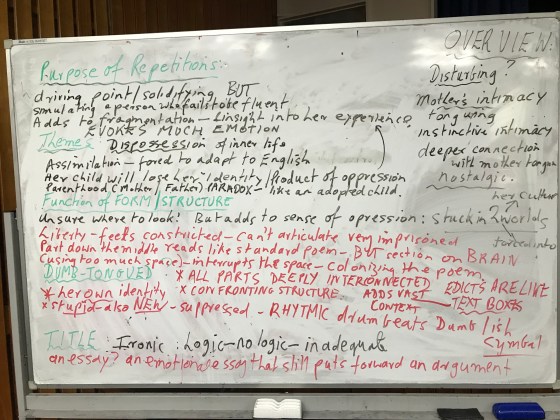 OVERVIEW
Purpose of Repetitions:-
driving point/solidifying, BUT
simulating a person who fails to be fluent
Adds to fragmentation - Insight into her experience
EVOKES MUCH EMOTION
Themes Discossession of inner life
Assimilation - forced to adapt to English
Her child will lose her identity/Product of oppression
Parenthood (Mother/Father) PARADOX - like an adopted child.
Function of FORM/STRUCTURE
Unsure where to look! But adds to sense of opression: stuck in 2 worlds
Liberty - feels constricted - can't articulate very imprisoned
Part down the middle reads like standard poem - BUT section on BRAIN
(using too much space) - interrupts the space - colonizing the poem
DUMB-TONGUED * ALL PARTS DEEPLY INTERCONNECTED EDICTS ARE LIVE
* her own identity * CONFRONTING STRUCTURE. ADDS VAST TEXT BOXES
CONTEXT
* stupid - also NEW - suppressed - RHYTMIC drumbeats Dumb/ish
Cymbal
TITLE Ironic: Logic - no logic - inadequate
an essay? an emotional essay that still puts forward an argument
Disturbing?
Mother's intimacy
tongueing
instinctive intimacy
deeper connection
with mother tongue
nostalgic.
her culture
forced into